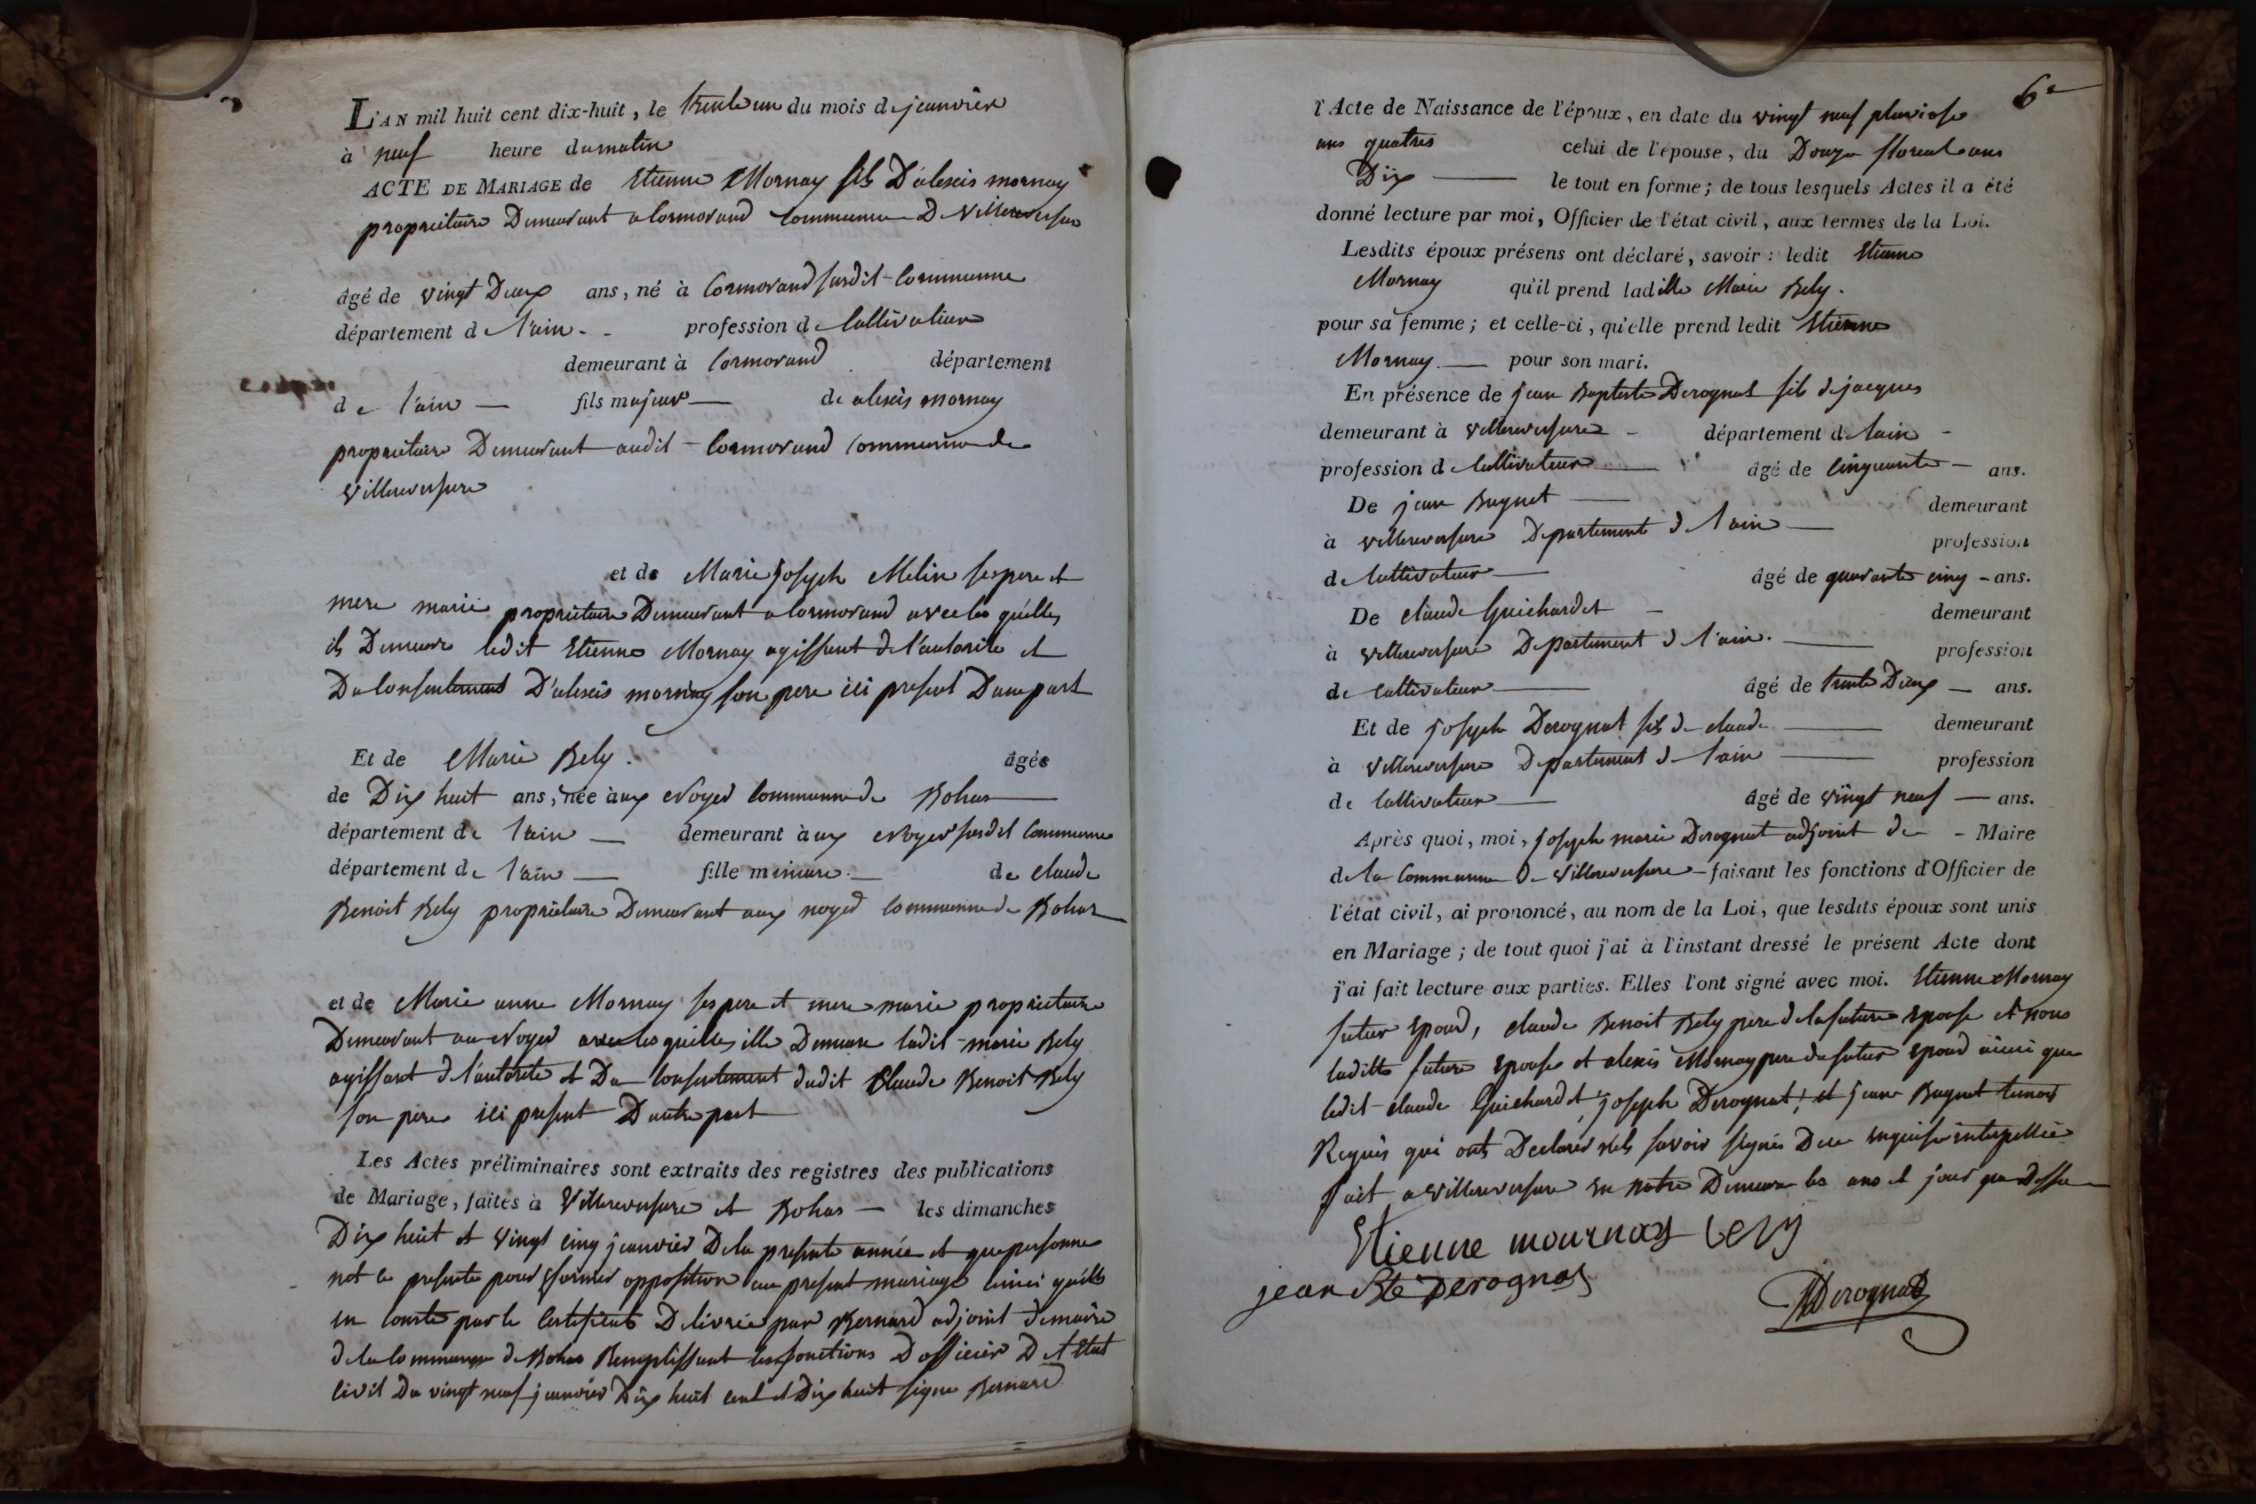 L'AN mil huit cent dix-huit, le trente un du mois de jeanvier
à neuf heure dumatin
ACTE DE MARIAGE de Etienne Mornay fils D'alexis mornay
propriétaire Demeurant a Cormorand Commune De Villereversure
âgé de vingt Deux ans, né à Cormorand susdit Commune
département de l'ain - profession de Cultivateur
demeurant à Cormorand département
de l'ain fils majeur de alexis mornay
propriétaire Demeurant audit Cormorand Commune de
Villereversure
et de Marie Joseph Melin ses pere et
mere marié propriétaire Demeurant a Cormorand avec les quelles
il Demeure ledit Etienne Mornay agissent de l'autorité et
Du Consentement D'alexis mornay son pere ici present D'une part
Et de Marie Bely . âgée
de Dix huit ans, née aux Noyer Commune de Bohas
département de l'ain demeurant aux Noyer susdit Commune
département de l'ain fille mineure de claude
Benoit Bely propriétaire Demeurant aux noyer commune de Bohas
et de Marie anne Mornay ses pere et mere marié propriétaire
Demeurant au Noyer avec les quelles elle Demeure ladit marie Bely
agissant de l'autorité et Du Consentement dudit Claude Benoit Bely
son pere ici present D'autre part
Les Actes préliminaires sont extraits des registres des publications
de Mariage, faites à Villereversure et Bohas les dimanches
Dix huit et vingt cinq jeanvier De la presente année et que personne
not ce presente pour former opposition au present mariage ainsi quelle
en conste par le Certificats Delivrée par Bernard adjoint de maire
de la commune de Bohas Remplissant les fonctions D'officier De l'Etat
Civil Du vingt neuf jeanvier Dix huit cent et Dix huit signe Bernard
6e
l'Acte de Naissance de l'époux, en date du vingt neuf pluviose
ans quatres celui de l'épouse, du Douze floreal ans
Dix le tout en forme; de tous lesquels Actes il a été
donné lecture par moi, Officier de l'état civil, aux termes de la Loi.
Lesdits époux présens ont déclaré, savoir : ledit Etienne
Mornay qu'il prend ladite Marie Bely .
pour sa femme; et celle-ci, qu'elle prend ledit Etienne
Mornay pour son mari.
En présence de jean Baptiste Derognat fils de jacques
demeurant à Villereversure - département de l'ain -
profession de Cultivateur âgé de Cinquante - ans.
De jean Buguet demeurant
à Villereversure Departement de l'ain profession
de Cultivateur âgé de quarante cinq - ans.
De claude Guichardet demeurant
à Villereversure Departement de l'ain. profession
de Cultivateur âgé de trente Deux ans.
Et de joseph Derognat fils de claude demeurant
à Villereversure Departement de l'ain profession
de Cultivateur âgé de vingt neuf ans.
Après quoi, moi, joseph marie Derognat adjoint de - Maire
de la Commune De Villereversure faisant les fonctions d'Officier de
l'état civil, ai prononcé, au nom de la Loi, que lesdits époux sont unis
en Mariage; de tout quoi j'ai à l'instant dressé le présent Acte dont
j'ai fait lecture aux parties. Elles l'ont signé avec moi. Etienne Mornay
futur Epoud, claude Benoit Bely pere de la future Epouse et nous
laditte future Epouse et alexis Mornay pere du futur Epoud ainsi que
ledit claude Guichardet, joseph Derognat, et jean Buguet temois
Requis qui ont Declaré nes savoir signés De ce enquis interpellée
fait a Villereversure en notre Demeure les ans et jour que Dessu
Etienne mournay bely
jean Bte Derognat
JDerognat